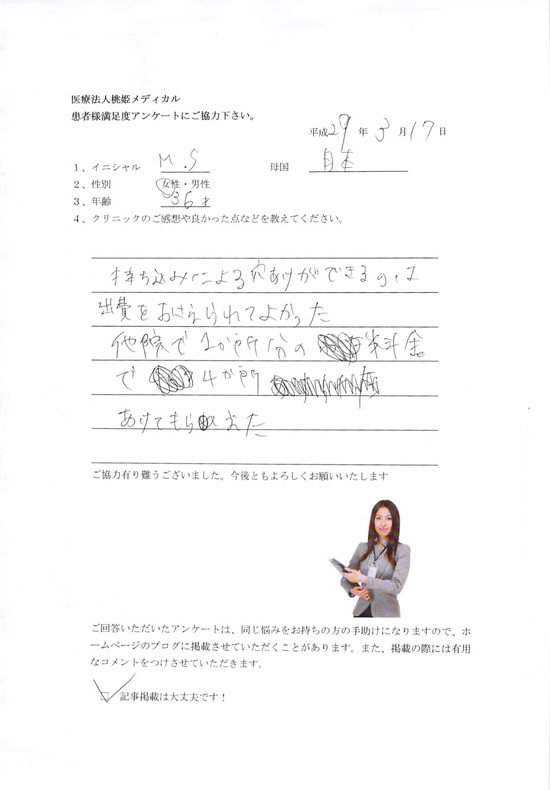 医療法人桃姫メディカル
患者様満足度アンケートにご協力下さい。
平成29年3月17日
1、イニシャル M.S 母国 日本
2、性別 女性・男性
3、年齢 36才
4、クリニックのご感想や良かった点などを教えてください。
持ち込みによる穴あけができるので、
出費をおさえられてよかった
他院で1か所分の 料金
で 4か所
あけてもらえた
ご協力有り難うございました。今後ともよろしくお願いいたします
ご回答いただいたアンケートは、同じ悩みをお持ちの方の手助けになりますので、ホ
ームページのブログに掲載させていただくことがあります。また、掲載の際には有用
なコメントをつけさせていただきます。
□ 記事掲載は大丈夫です！